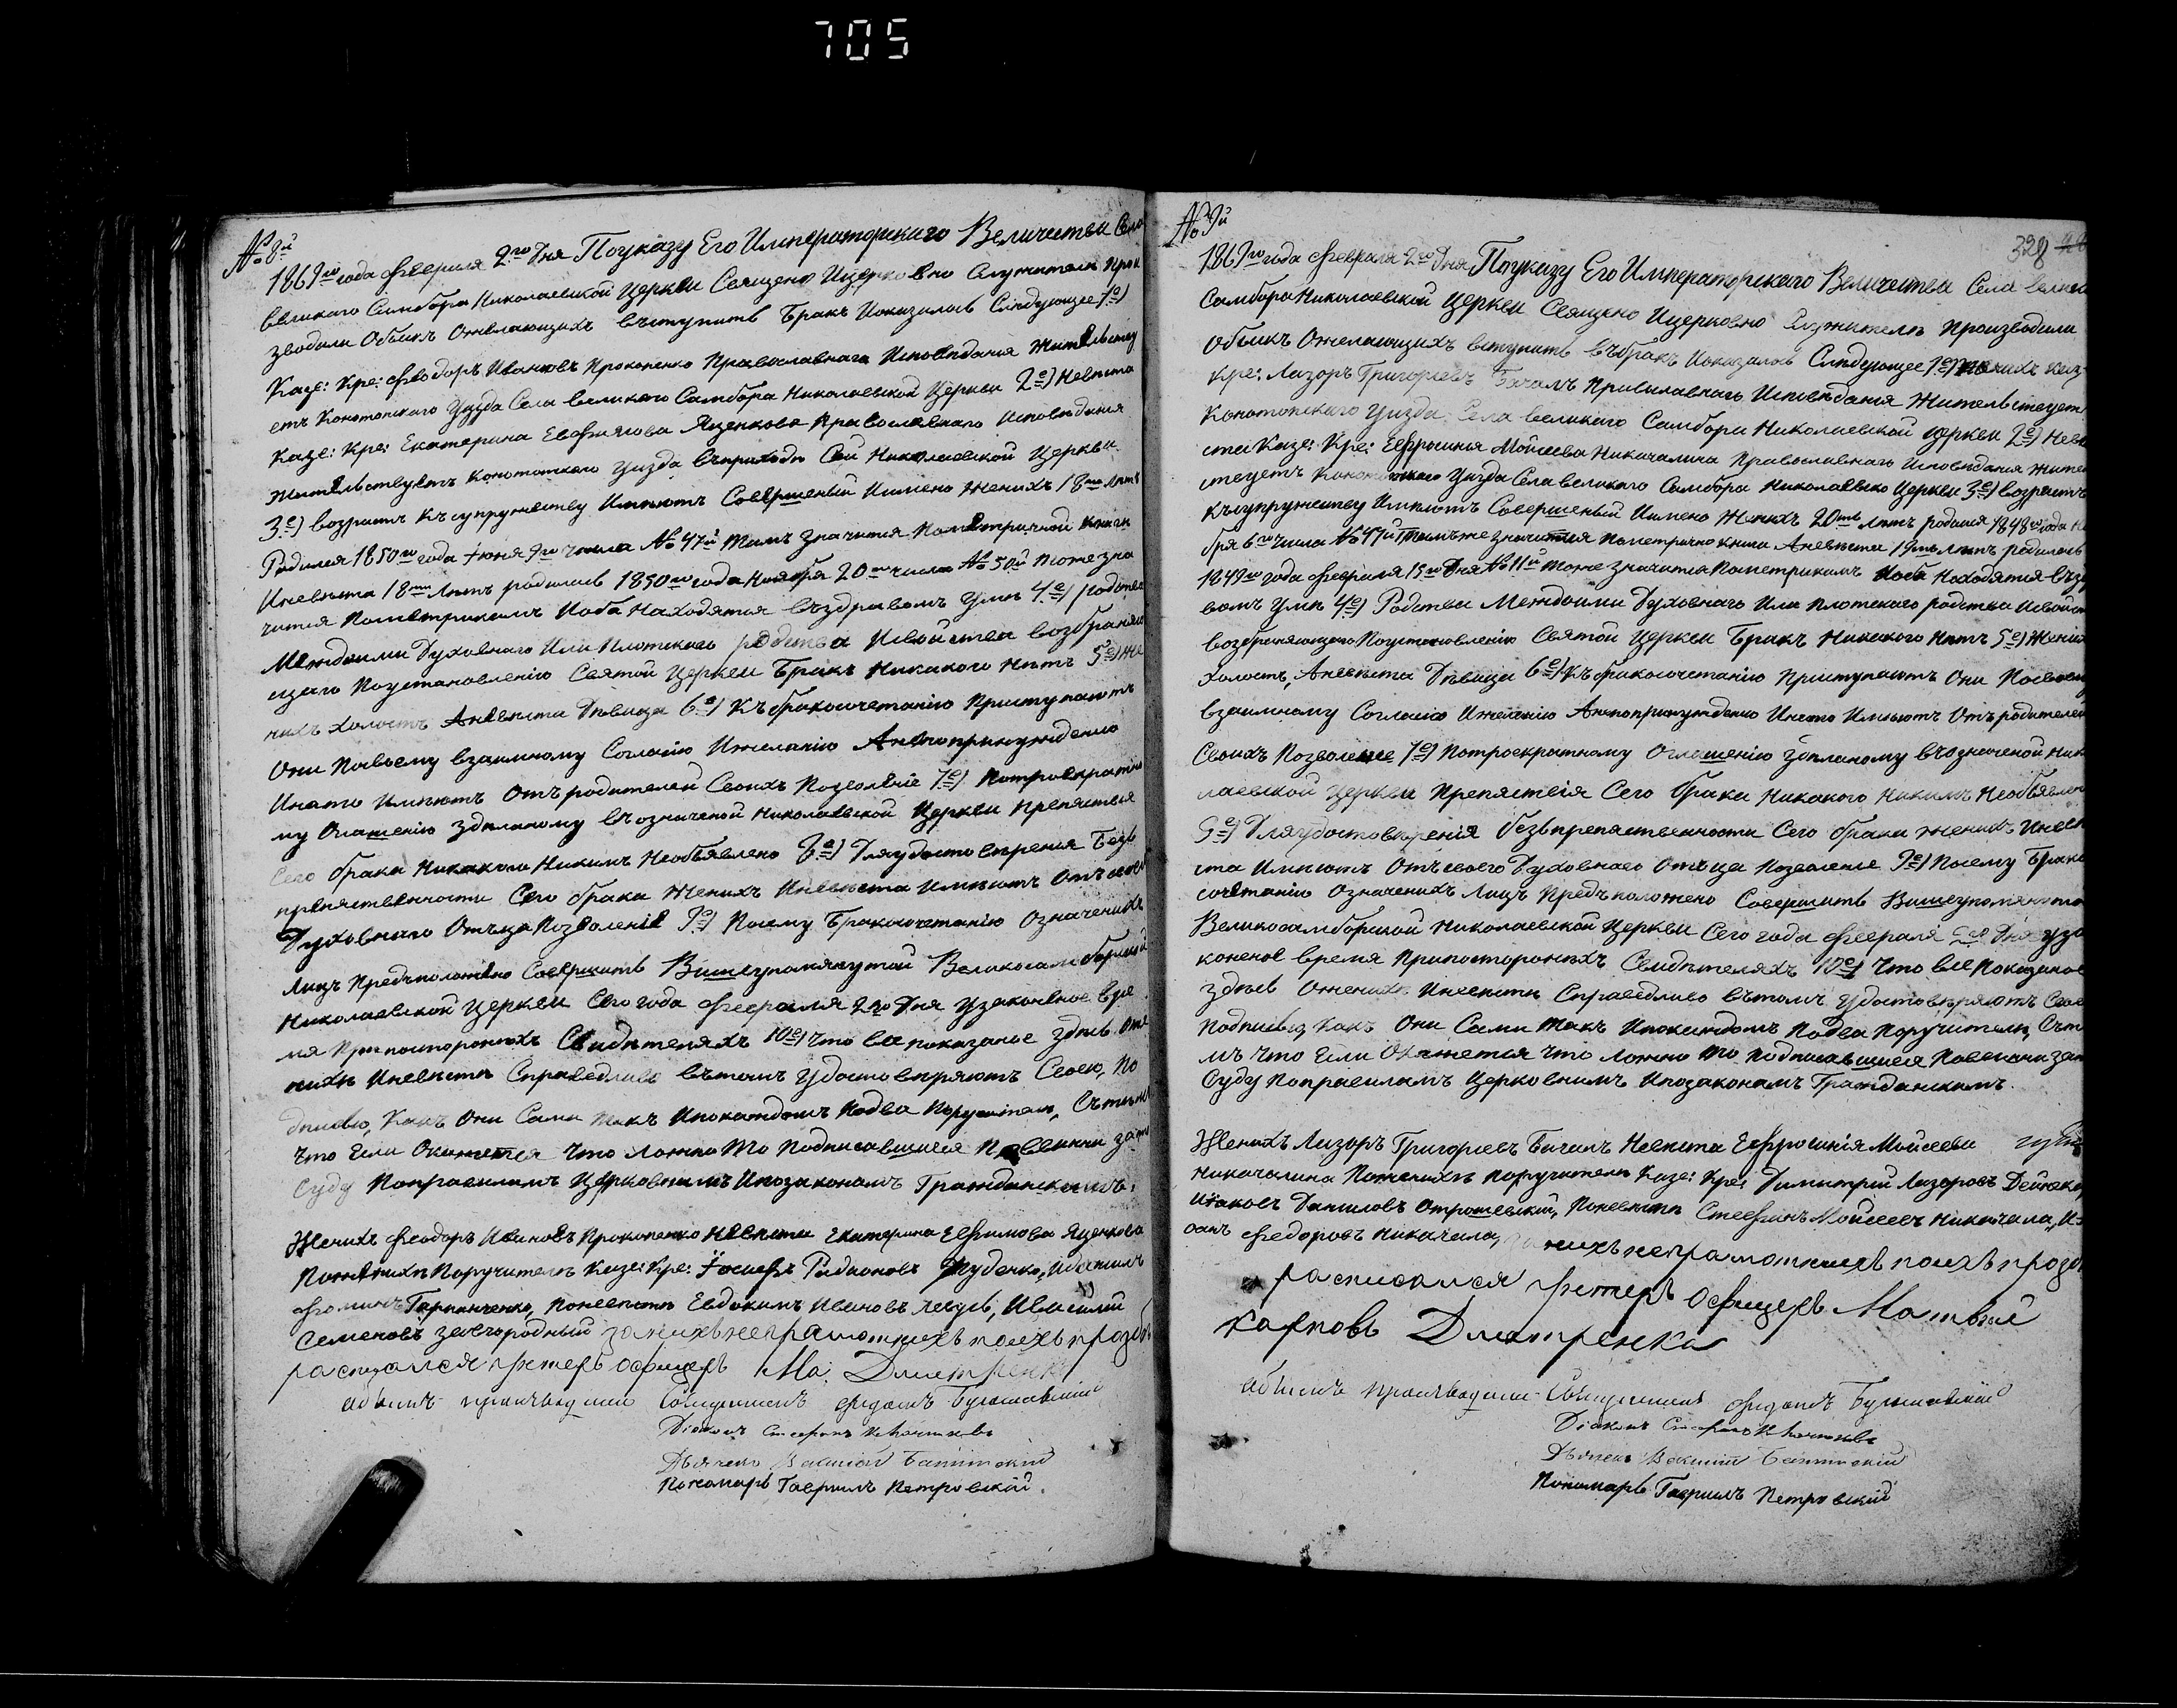 705
№ 8й
1869го года февраля 2го дня Поуказу Его Императорскаго Величества Села
великаго Самбора Николаевской Церкви Священо Ицерковно Служители прои
зводили Обыскъ Ожелающихъ въступить Бракъ Иоказалось Слѣдующее 1е)
Казе: Кре: Феодоръ Ивановъ Прокопенко Православнаго Исповѣданія Жительству
етъ Конотопскаго Уѣзда Села великаго Самбора Николаевской Церкви 2е) Невѣста
Казе: Кре: Екатерина Евфимова Яценкова Православнаго Исповѣданія
Жительствуетъ Конотопскаго уѣзда въприходѣ Сей Николаевской Церкви
3е) возрастъ Късупружеству Имѣютъ Совершеный Имено Женихъ 18ть Лѣтъ
Родился 1850го года Iюня 9го числа № 47й Тамъ значится Пометричной книги
Иневѣста 18ть Лѣтъ родилась 1850го года Ноября 20го числа № 50й Тоже зна
чится Пометрикамъ Иоба Находятся въздравомъ умѣ 4е) родства
Междоими Духовнаго Или Плотскаго родства Исвойства возбраняю
щаго Поустановленію Святой Церкви Бракъ Никакого Нѣтъ 5е) Же
нихъ холостъ Аневѣста Дѣвица 6е) Къбракосочетанію Приступаютъ
Они Посвоему взаимному Согласію Ижеланію Анепопринужденію
Инато Имѣютъ Отъродителей Своихъ Позволеніе 7е) Потроекратно
му Оглашенію здѣланому въозначеной Николаевской Церкви Препятствія
Сего брака Никакого Никимъ Необъявлено 8е) Дляудостовѣренія Безъ
препятственности Сего брака Женихъ Иневѣста Имѣютъ Отъсвоего
Духовнаго Отъца Позволеніе 9е) Посему Бракосочетанію Означенихъ
Лицъ Предъположено Совершить Вишеупомянутой Великосамборской
Николаевской Церкви Сего года Февраля 2го Дня Узаконеное вре
мя Припосторонихъ Свидѣтеляхъ 10е) Что все показаное здѣсь Оже
нихѣ Иневѣстѣ Справедливо вътомъ удостовѣряютъ Своею, По
дписью, Какъ Они Сами Такъ Ипокаждомъ Подва Поручители, Сътѣмъ
Что Если Окажется Что Ложно То Подписавшиеся Повенны зато
Суду Поправиламъ Церковнимъ Ипозаконамъ Гражданскимъ.
Женихъ Феодоръ Ивановъ Прокопенко Невѣста Екатерина Евфимова Яценкова
Поженихѣ Поручители Казе: Кре: Iосифъ Радионовъ Руденко,
Поневѣстѣ Евдокимъ Ивановъ Ивасилий
Семеновъ Завгородный за нихъ неграмотнихъ поихъ прозбѣ
расписался унтеръ офицеръ Ма. Дмитренко
Обыскъ производили Священникъ Федотъ
Дiаконъ Стефанъ
Дьячекъ Василий
Пономарь Гавриилъ Петровскій.
№ 9й
328
1869го года Февраля 2го Дня Поуказу Его Императорскаго Величества Села велика
Самбора Николаевской Церкви Священо Ицерковно Служители Производили
Обыскъ Ожелающихъ вступить въбракъ Иоказалось Слѣдующее 1е) Женихъ казе
Кре: Лазоръ Григориевъ Бачалъ Православнаго Исповѣданія Жительствуетъ
Конотопскаго уѣзда Села великаго Самбора Николаевской Церкви 2е) Невѣ
ста Казе: Кре: Евфросинья Мойсеева Никачалина Православнаго Исповѣданія Жите
ствуетъ Конотопскаго Уѣзда Села великаго Самбора Николаевско Церкви 3е) возрастъ
Късупружеству Имѣютъ Совершеный Имено Женихъ 20ть Лѣтъ родился 1848го года но
бря 6го Числа № 47й Тамъже значится Пометричнокниги Аневѣста 19ть лѣтъ родилась
1849го года Февраля 15го Дня № 11й Тоже значится Пометрикамъ Иоба Находятся въздра
вомъ умѣ 4е) Родства Междоими Духовнаго Или Плотскаго родства Исвойст
возбраняющаго Поустановленію Святой Церкви Бракъ Никакого Нѣтъ 5е) Жених
Холостъ, Аневѣста Дѣвица 6е) Къбракосочетанію Приступаютъ Они Посвоему
взаимному Согласію Ижеланію Анепопринужденію Инато Имѣютъ Отъродителей
Своихъ Позволение 7е) Потроекратному Оглашенію здѣланому въозначеной Нико
лаевской Церкви Препятствія Сего брака Никакого Никимъ Необъявлено
8е) Дляудостовѣренія безъпрепятственности Сего брака Женихъ Иневѣ
ста Имѣютъ Отъсвоего Духовнаго Отьца Позволение 9е) Посему Брако
сочетанію Означенихъ Лицъ Предъположено Совершить Вишеупомянутой
Великосамборской Николаевской Церкви Сего года Февраля 2го Дня уза
коненое время Припосторонихъ Свидѣтеляхъ 10е) Что все Показаное
здѣсь Оженихѣ Иневѣстѣ Справедливо вътомъ Удостовѣряютъ Свое
Подписью, Какъ Они Сами Такъ Ипокаждомъ Подва Поручители, Сътѣ
мъ Что Если Окажется Что Ложно То Подписавшиеся Повенны зато
Суду Поправиламъ Церковнимъ Ипозаконамъ Гражданскимъ.
Женихъ Лазоръ Григориевъ Бачалъ Невѣста Евфросинія Мойсеева
Никачалина Поженихѣ Поручители Казе: Кре: Димитрий Лазоровъ
Ияковъ Даниловъ Отрошевский, Поневѣстѣ Стефанъ Мойсеевъ Никачала, И
оанъ Федоровъ Никачала, за нихъ неграмотнихъ поихъ прозбѣ
расписался унтеръ офицеръ Матвей
Карповъ Дмитренко
Обыскъ производили Священникъ Федотъ
Дiаконъ Стефанъ
Дьячекъ Василий
Пономарь Гавриилъ Петровский